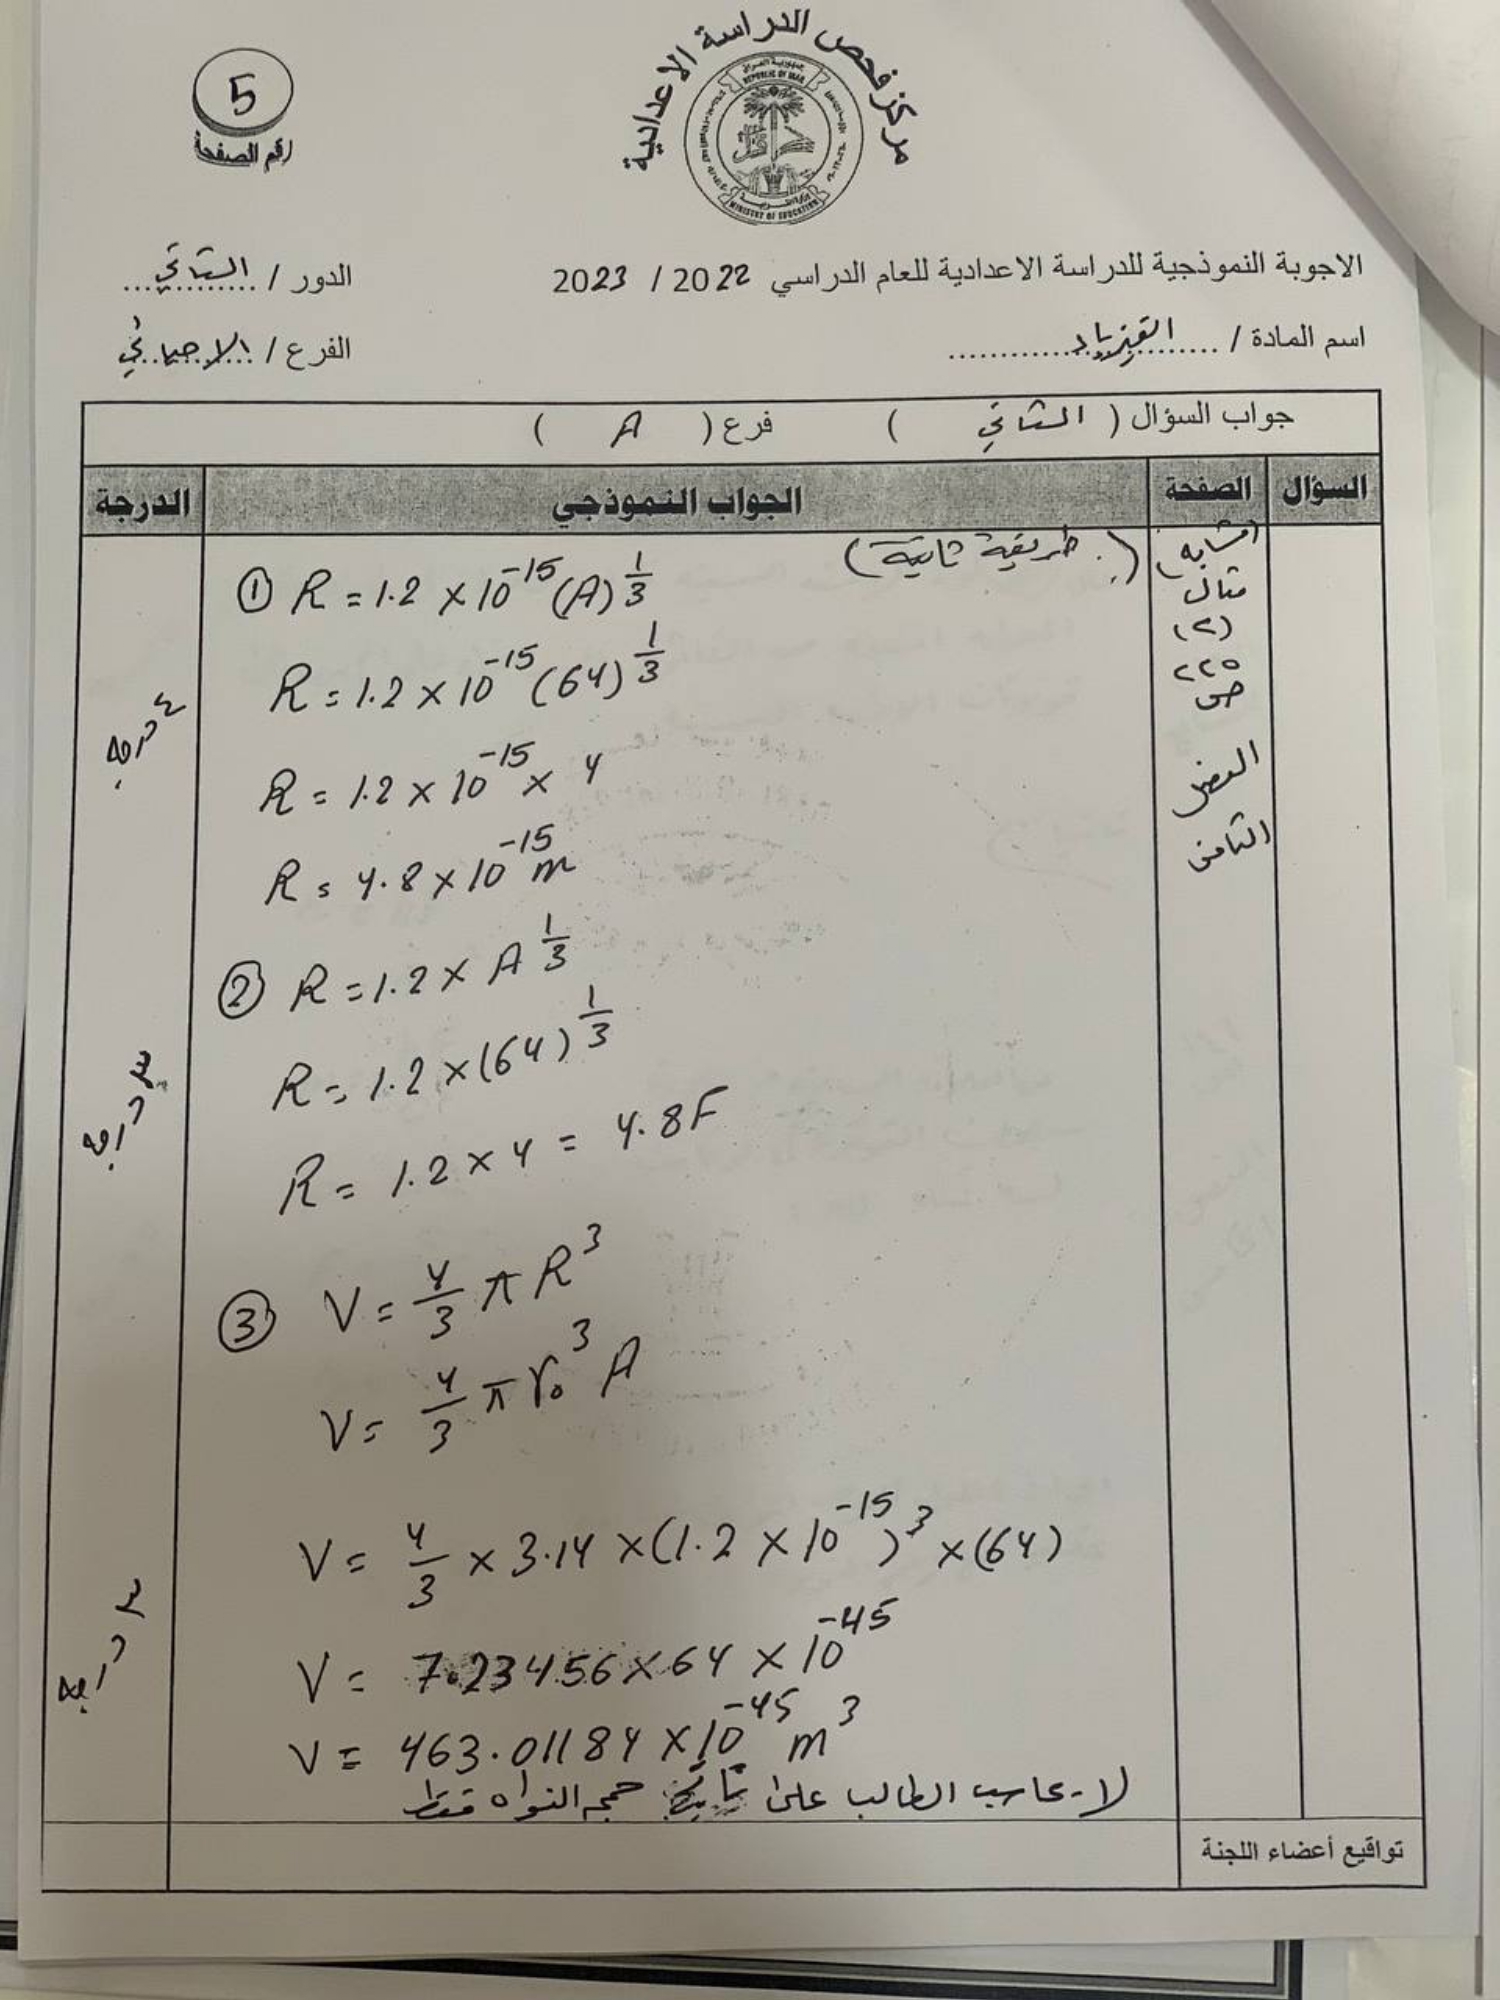 مركز فحص الدراسة الاعدادية
جمهورية العراق
REPUBLIC OF IRAQ
MINISTRY OF EDUCATION
5
رقم الصفحة
الاجوبة النموذجية للدراسة الاعدادية للعام الدراسي 2022 / 2023
الدور / الثاني
اسم المادة / الفيزياء
الفرع / الاحيائي
جواب السؤال ( الثاني ) فرع ( A )
السؤال الصفحة الجواب النموذجي الدرجة
(مشابه)
مثال
(٢)
٢٢٥
ص
الفصل
الثامن
(طريقة ثانية)
① R = 1.2 × 10^-15 (A)^1/3
R = 1.2 × 10^-15 (64)^1/3
٤ درجة
R = 1.2 × 10^-15 × 4
R = 4.8 × 10^-15 m
② R = 1.2 × A^1/3
R = 1.2 × (64)^1/3
٣ درجة
R = 1.2 × 4 = 4.8 F
③ V = 4/3 π R^3
V = 4/3 π r₀^3 A
V = 4/3 × 3.14 × (1.2 × 10^-15)^3 × (64)
٣ درجة
V = 7.23456 × 64 × 10^-45
V = 463.01184 × 10^-45 m^3
لا يحاسب الطالب على حجم النواه فقط
تواقيع أعضاء اللجنة